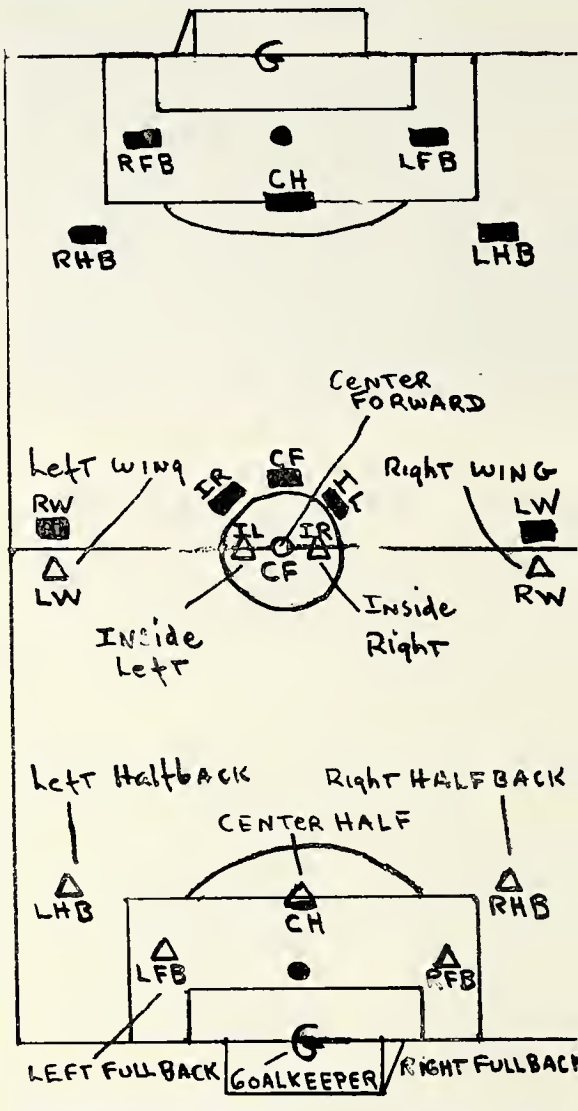 G
RFB
LFB
CH
RHB
LHB
CENTER
FORWARD
Left WING
CF
Right WING
IR
IL
RW
LW
IL
IR
CF
LW
RW
INSide
Left
Inside
Right
Left HalfbACK
Right HALFBACK
CENTER HALF
LHB
CH
RHB
LFB
RFB
G
LEFT FULLBACK
GOALKEEPER
RIGHT FULLBACK